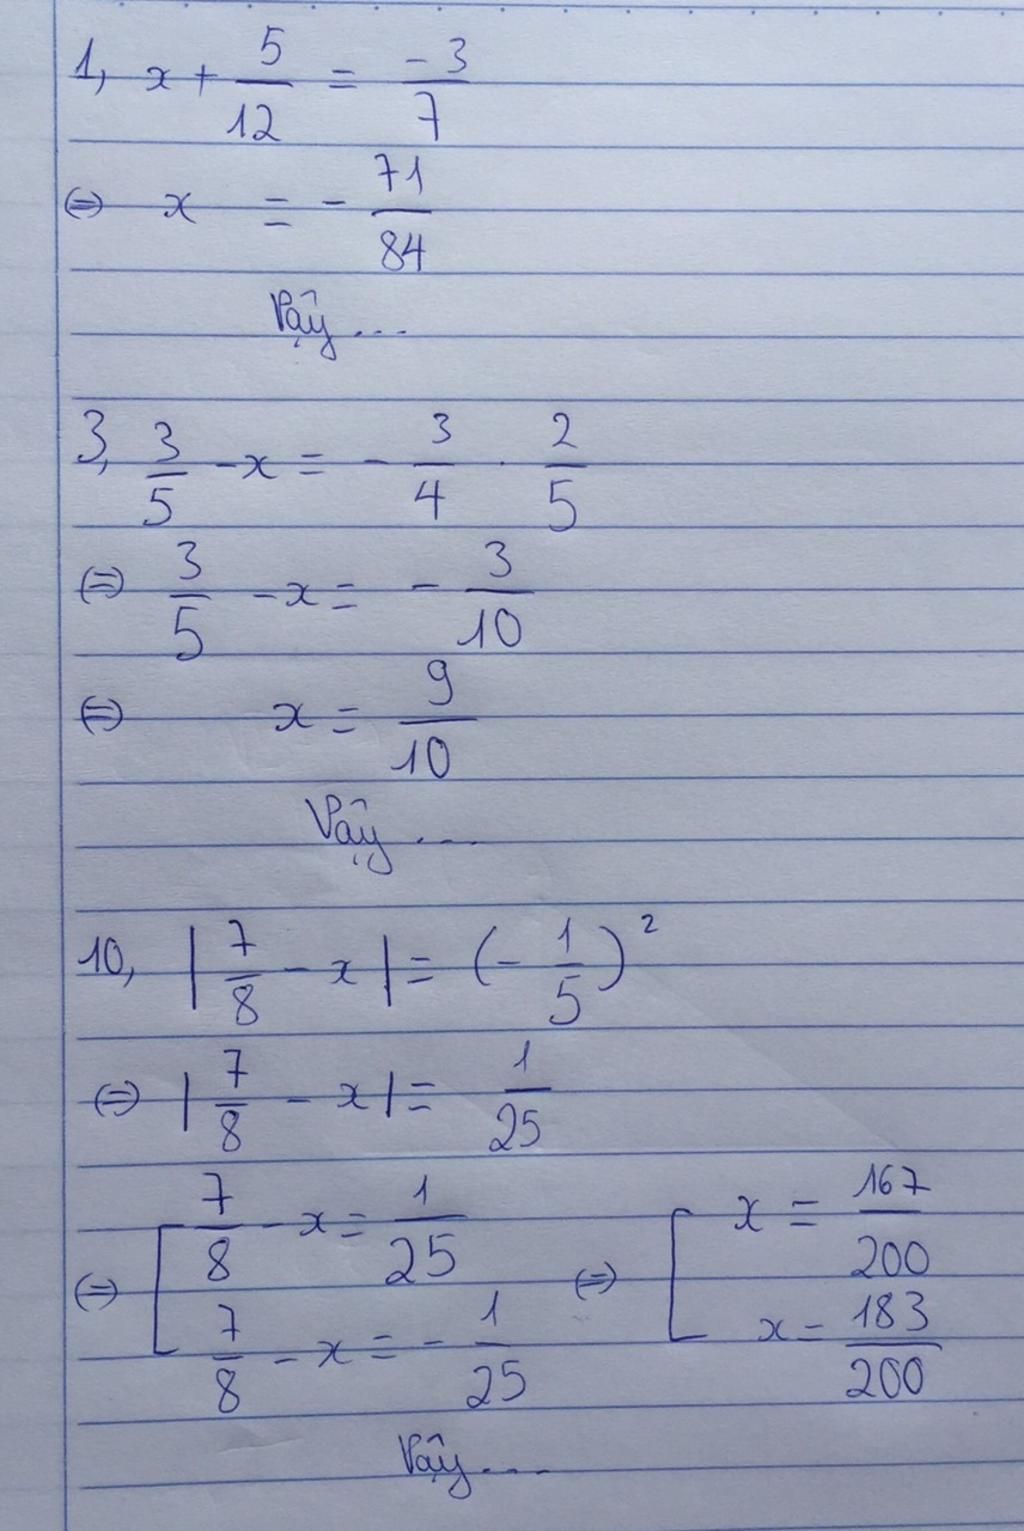 1, x + 5/12 = -3/7
⇔ x = - 71/84
Vậy ...
3, 3/5 - x = - 3/4 . 2/5
⇔ 3/5 - x = - 3/10
⇔ x = 9/10
Vậy ...
10, |7/8 - x| = (- 1/5)²
⇔ |7/8 - x| = 1/25
⇔ [ 7/8 - x = 1/25 ⇔ [ x = 167/200
7/8 - x = - 1/25 x = 183/200
Vậy ...